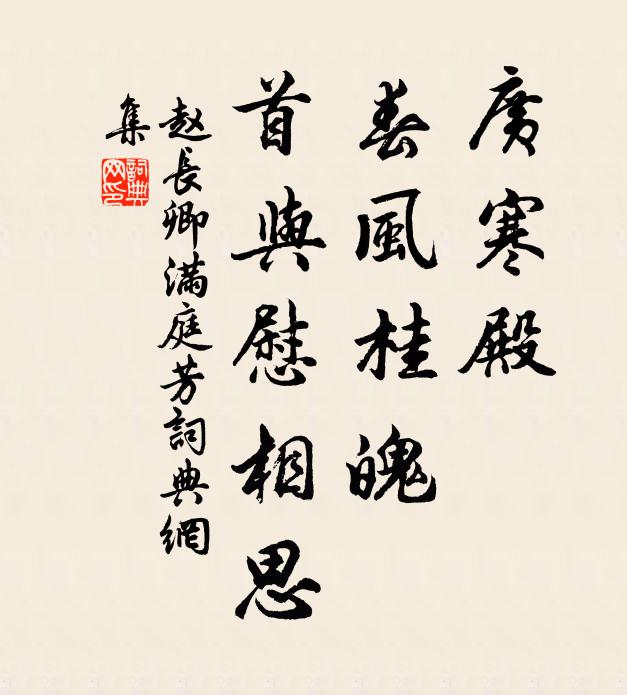 廣寒殿
春風桂魄
首與慰相思
赵長卿滿庭芳詞典網
集
詞典
网印